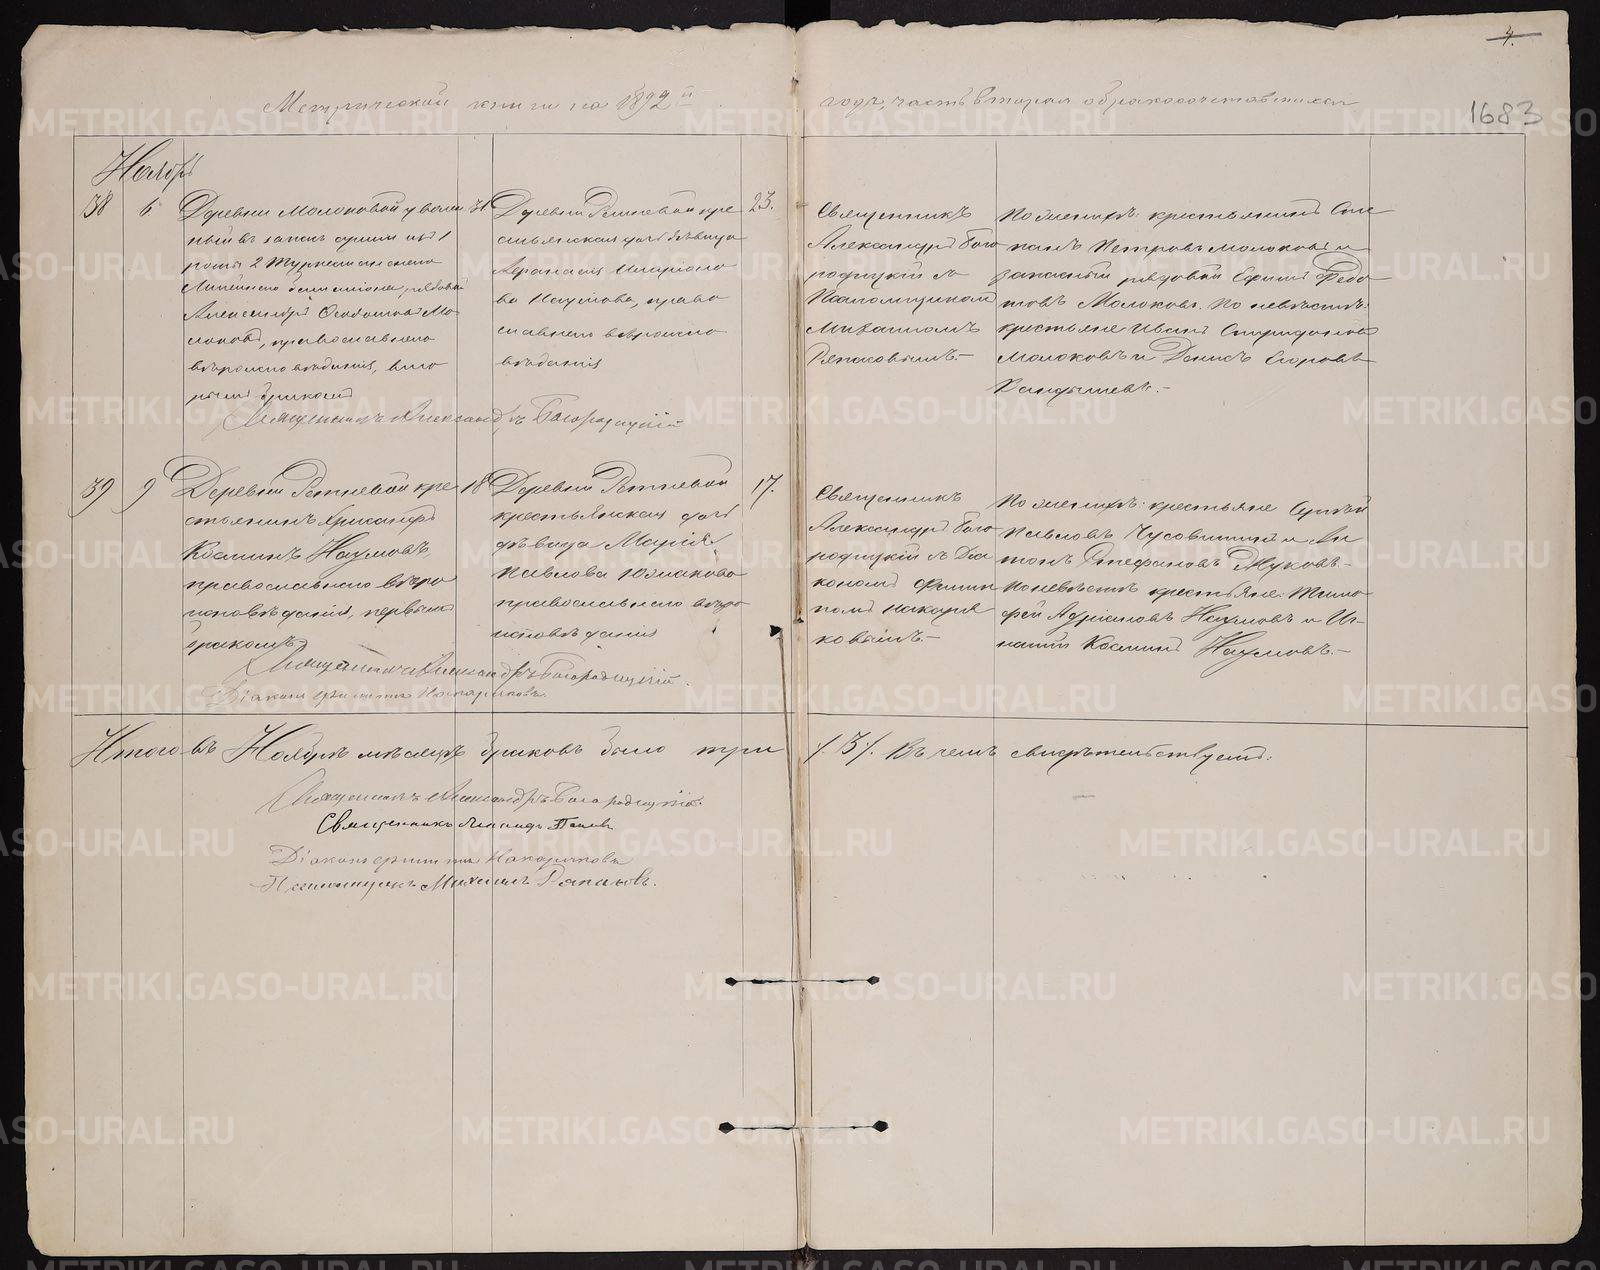 4.
Метрической книги на 1892й годъ, часть вторая о бракосочетавшихся
1683
Ноябрь
38
6
Деревни Молоковой уволен
ный въ запасъ армии изъ 1
роты 2 Туркестанскаго
Линейнаго баталіона, рядовой
Александръ Молоковъ, православнаго
вѣроисповѣданія, вто
рымъ бракомъ
31
Деревни Ретневой кре
стьянская дочь дѣвица
Наумова, право
славнаго вѣроиспо
вѣданія
23.
Священникъ
Александръ Бого
родицкій съ
Псаломщикомъ
Михаиломъ
Ряпасовымъ.-
По женихѣ: крестьянинъ Сте
панъ Петровъ Молоковъ и
запасный рядовой Ефимъ Федо
товъ Молоковъ. По невѣстѣ:
крестьяне Иванъ Спиридоновъ
Молоковъ и Денисъ Егоровъ
Священникъ Александръ Богородицкій
39
9
Деревни Ретневой кре
стьянинъ Хрисанфъ
Козминъ Наумовъ,
православнаго вѣро
исповѣданія, первымъ
бракомъ
18
Деревни Ретневой
крестьянская дочь
дѣвица Марія
Павлова
православнаго вѣро
исповѣданія
17.
Священникъ
Александръ Бого
родицкій съ Діа
кономъ Филип
помъ Накаря
ковымъ.-
По женихѣ: крестьяне Сергѣй
Павловъ Чусовитинъ и Ан
тонъ Стефановъ Жуковъ.-
По невѣстѣ крестьяне: Тимо
фей Адріановъ Наумовъ и Иг-
натій Козминъ Наумовъ.-
Священникъ Александръ Богородицкій.
Діаконъ Филиппъ Накаряковъ.
Итого въ Ноябрѣ мѣсяцѣ браковъ было три /3/. Въ чемъ свидѣтельствуемъ:
Священникъ Александръ Богородицкій.
Священникъ Леонидъ Поповъ
Діаконъ Филиппъ Накаряковъ
Псаломщикъ Михаилъ Ряпасовъ.
METRIKI.GASO-URAL.RU